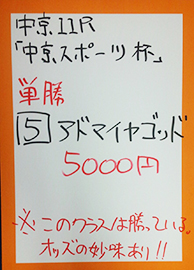 中京11R
「中京スポーツ杯」
単勝
5 アドマイヤゴッド
5000円
※このクラスは勝っている。
オッズの妙味あり!!